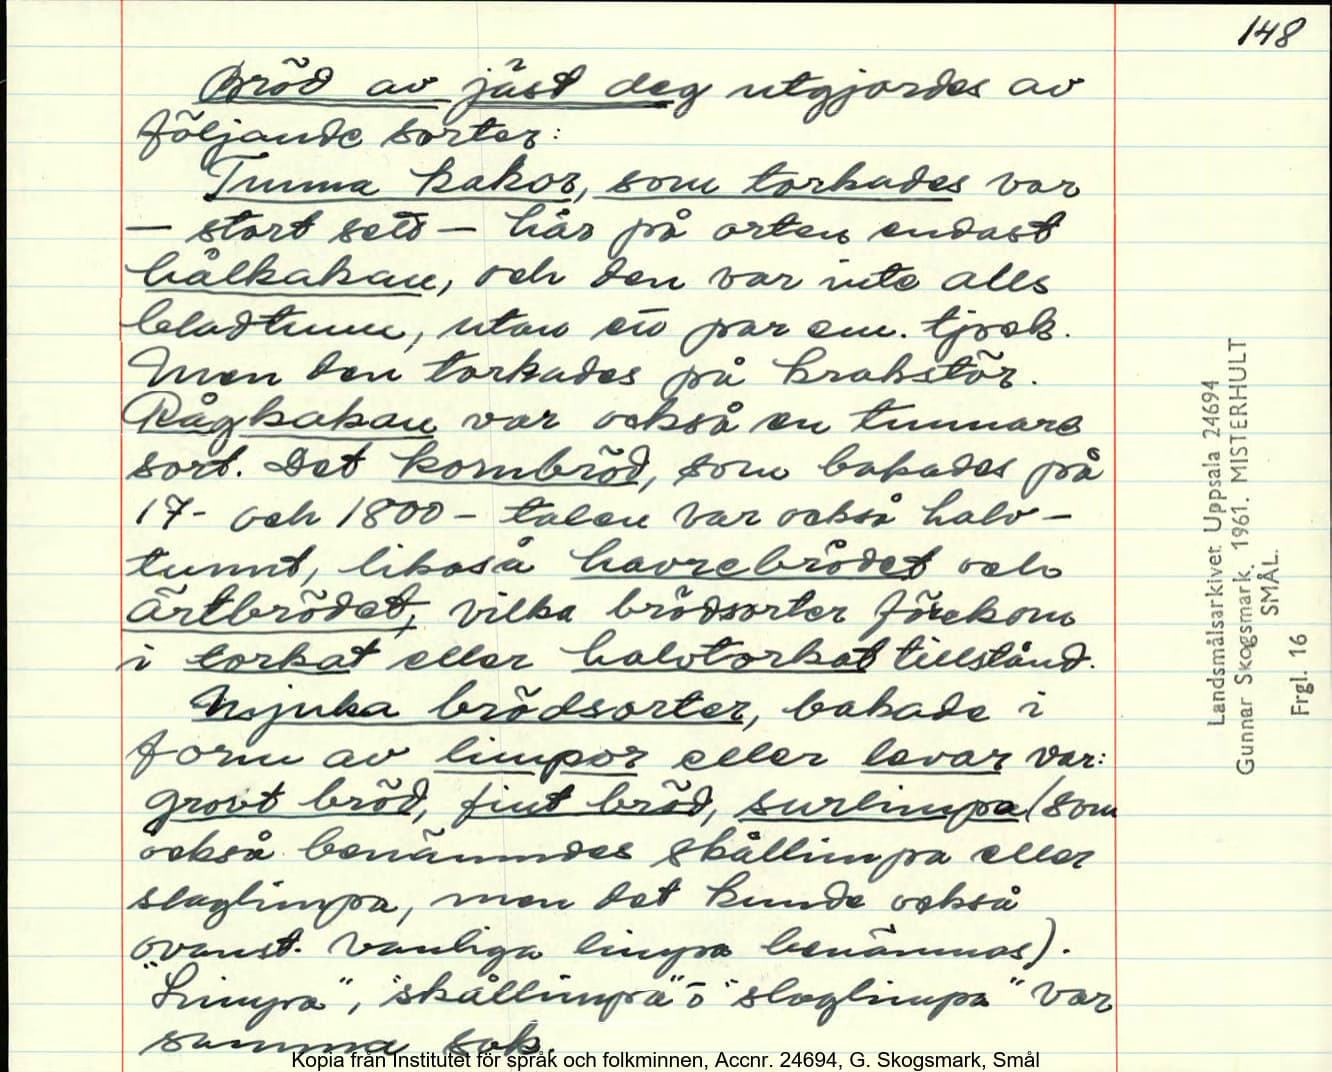 148
Bröd av jäst deg utgjordes av
följande sorter:
Tunna kakor, som torkades var
– stort sett – här på orten endast
hålkakan, och den var inte alls
bladtunn, utan ett par cm. tjock.
Men den torkades på krakstör.
Rågkakan var också en tunnare
sort. Det kornbröd, som bakades på
17- och 1800-talen var också halv-
tunnt, likaså havrebrödet och
ärtbrödet, vilka brödsorter förekom
i torkat eller halvtorkat tillstånd.
Mjuka brödsorter, bakade i
form av limpor eller levar var:
grovt bröd, fint bröd, surlimpa (som
också benämndes skållimpa eller
slaglimpa, men det kunde också
ovanst. vanliga limpa benämnas).
"Limpa", "skållimpa" o "slaglimpa" var
samma sak.
Landsmålsarkivet Uppsala 24694
Gunnar Skogsmark. 1961. MISTERHULT
SMÅL.
Frgl. 16
Kopia från Institutet för språk och folkminnen, Accnr. 24694, G. Skogsmark, Smål